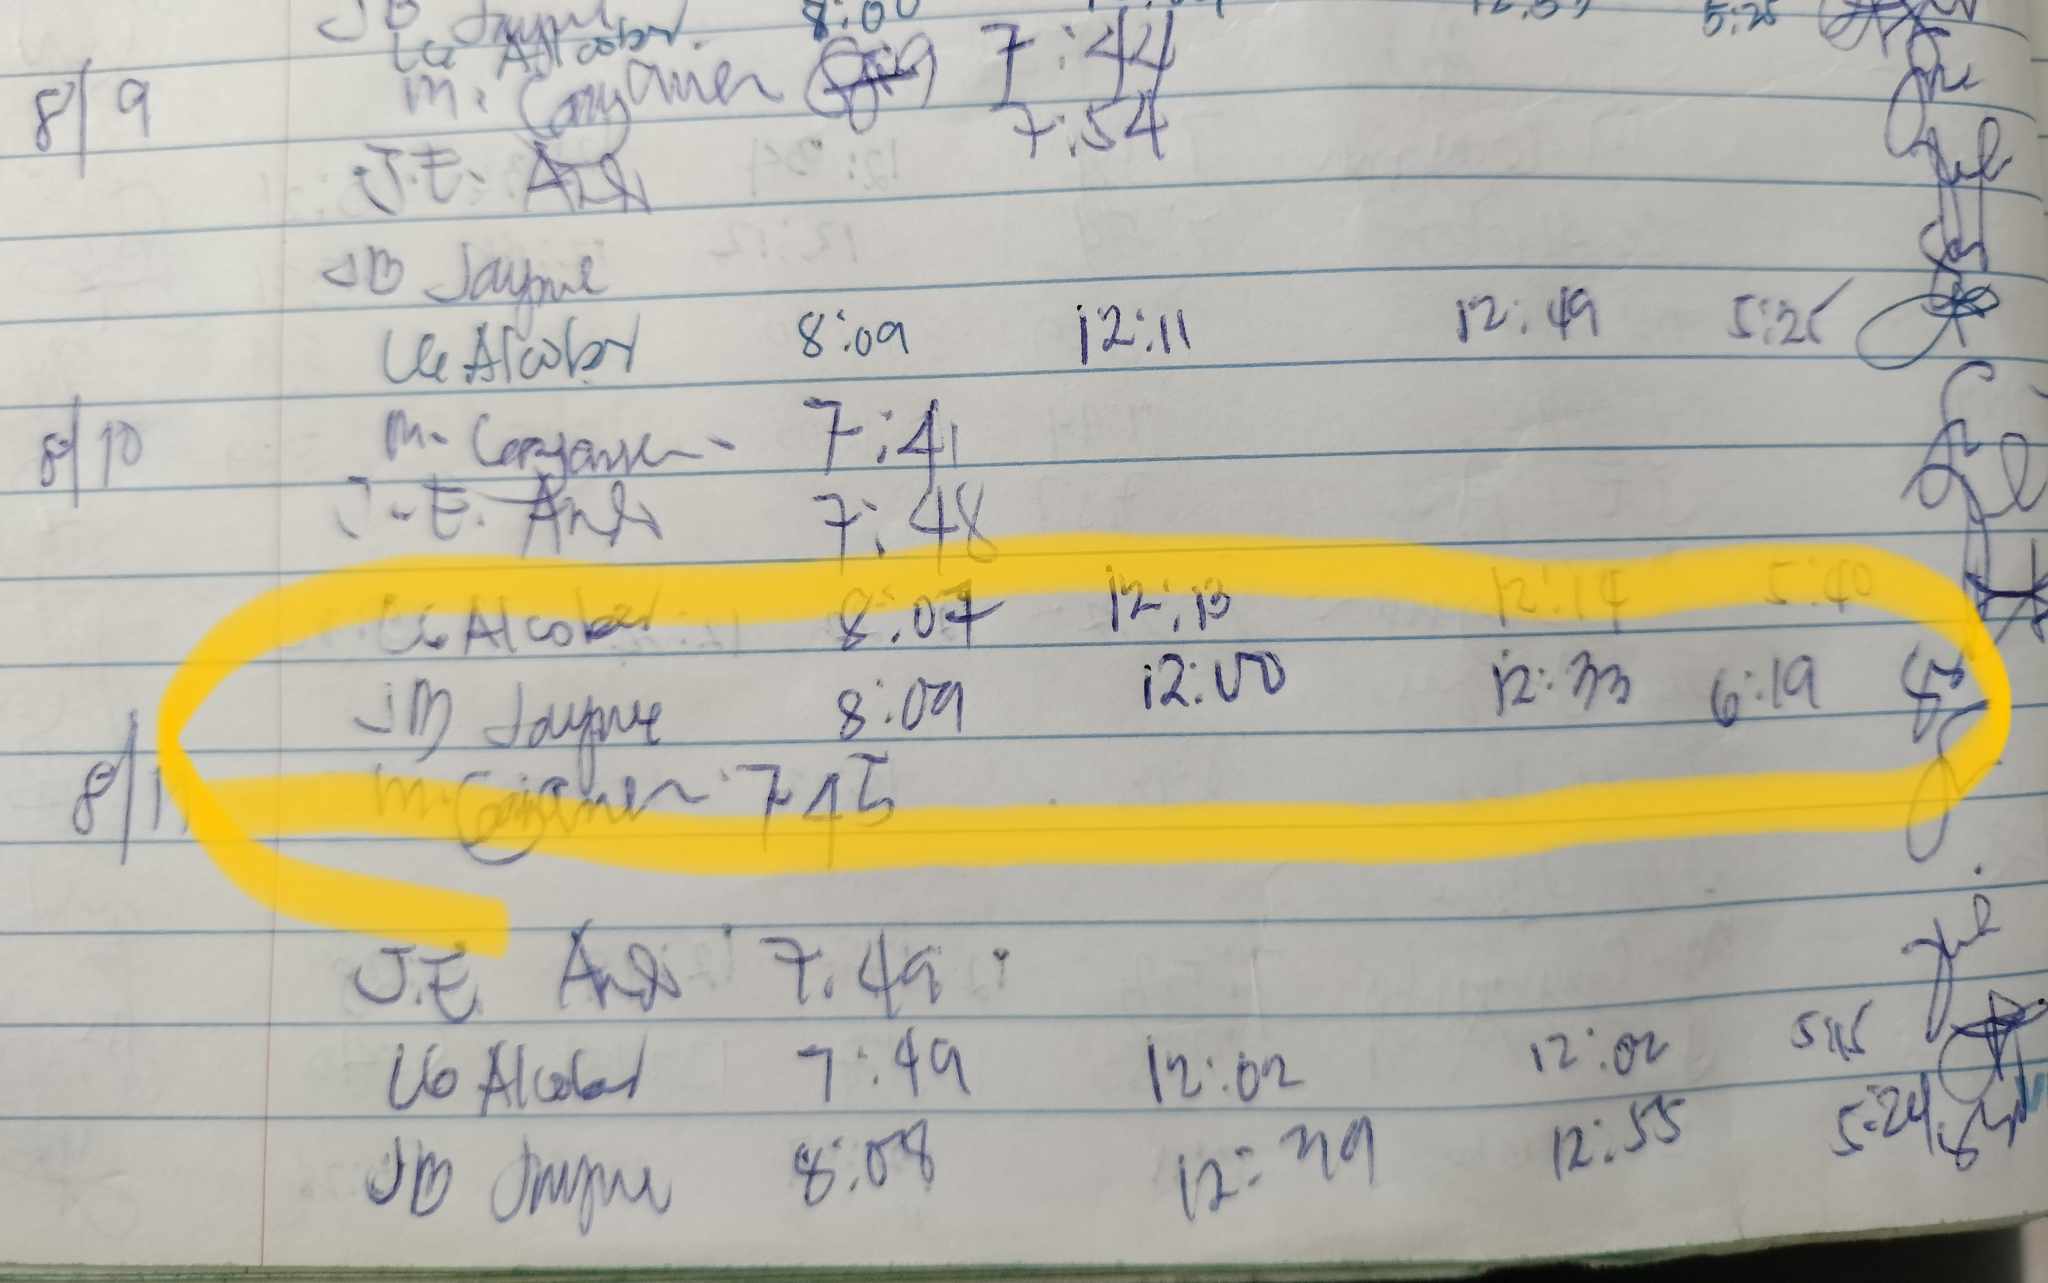 JB Jayme 8:00 5:25
LG Alcober
8/9 m. Cagamen 7:44
J.E. Andr 7:54
JB Jayme
LG Alcober 8:09 12:11 12:49 5:25
8/10 m. Cagamen 7:41
J.E. Andr 7:48
LG Alcober 8:07 12:13 12:14 5:40
JB Jayme 8:09 12:00 12:33 6:19
8/11 m. Cagamen 745
J.E. Andr 7:49
LG Alcober 7:49 12:02 12:02 5:15
JB Jayme 8:08 12:49 12:55 5:24